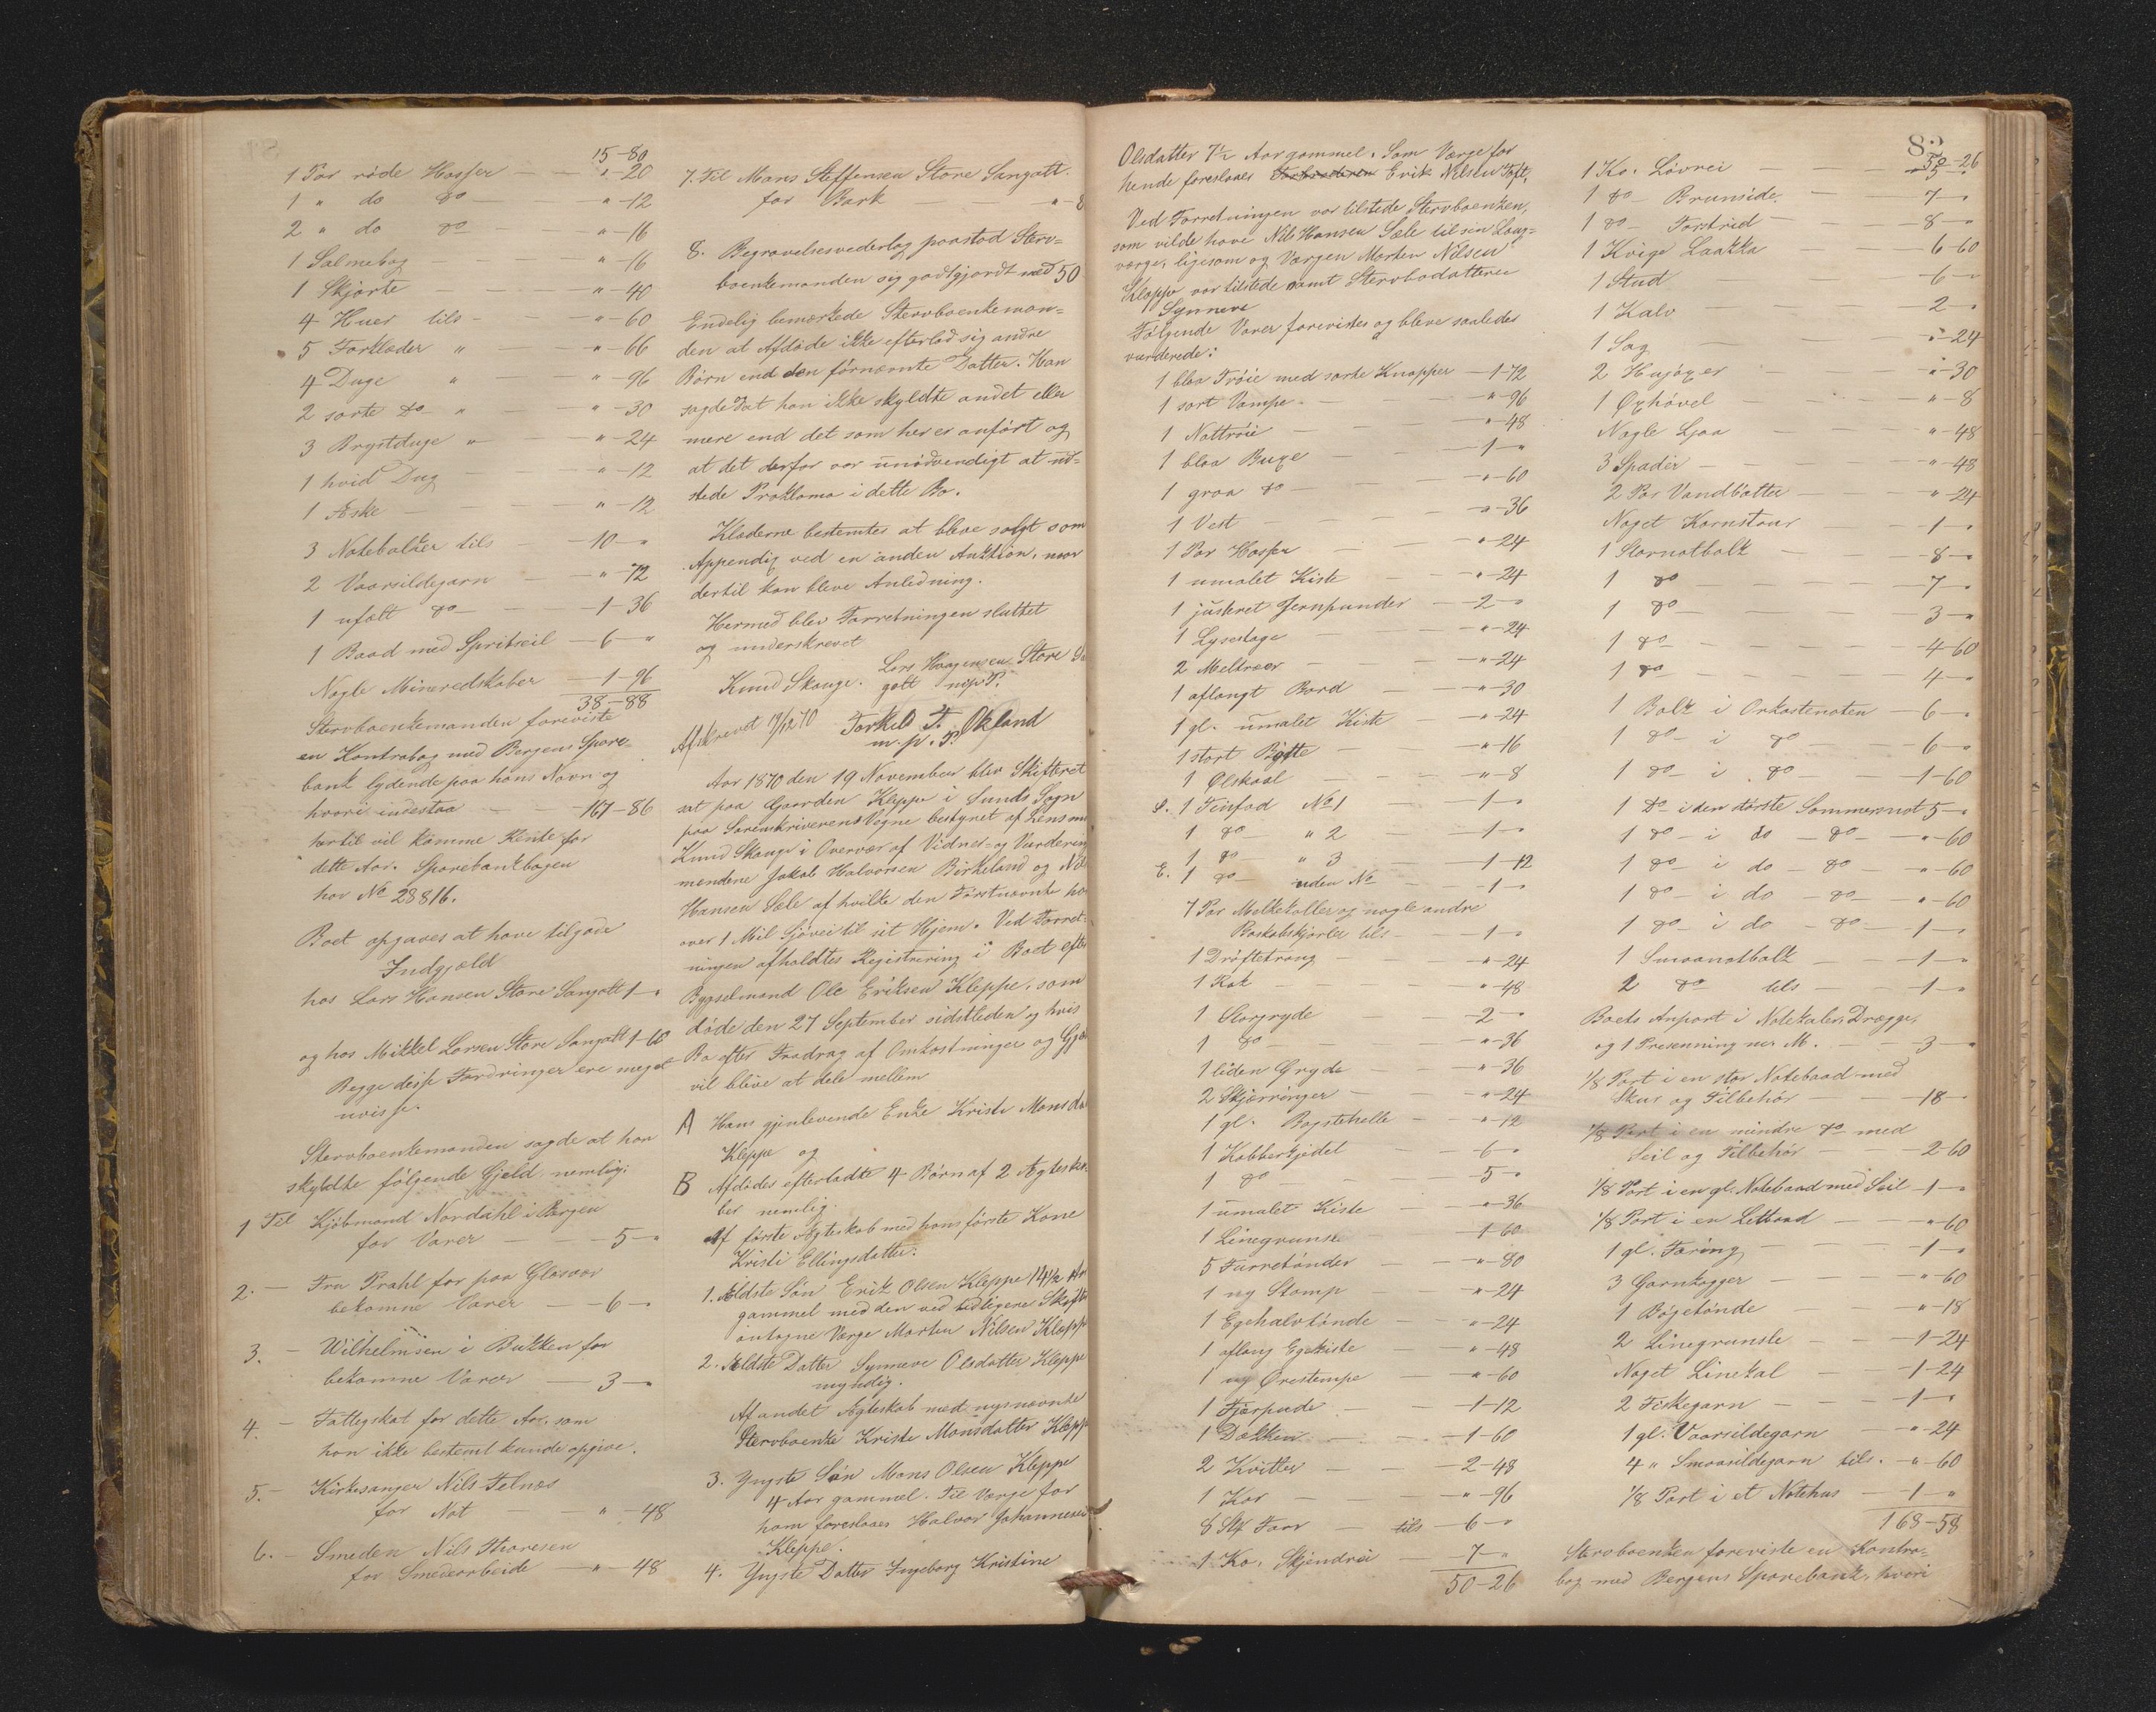 15-80
1 Par röde Hosser — " -20
1 " do do — " -12
2 " do do — " -16
1 Salmebog — " -16
1 Skjorte — " -40
4 Huer tils — " -60
5 Forklæder " — " -66
4 Duge " — " -96
2 sorte do " — " -30
3 Brystduge " — " -24
1 hvid Dug — " -12
1 Æske — " -12
3 Notebolker tils — 10- "
2 Vaarsildegarn — " -72
1 ufælt do — 1-36
1 Baad med Spritseil — 6- "
Nogle Mineredskaber — 1-96
38-88
Stervboenkemanden foreviste
en Kontrabog med Bergens Spare-
bank lydende paa hans Navn og
hvori indestaa — 167-86
hertil vil komme Rente for
dette Aar. Sparebankbogen
har No 28816.
Boet opgaves at have tilgode
Indgjæld
hos Lars Hansen Store Sangolt 1- "
og hos Mikkel Larsen Store Sangolt 1-60
Begge disse Fordringer ere meget
uvisse.
Stervboenkemanden sagde at han
skyldte følgende Gjeld, nemlig:
1 Til Kjöbmand Nordahl i Bergen
for Varer — 5- "
2. — Fru Prahl for paa Glesvær
bekomne Varer — 6- "
3. — Wilhelmsen i Bukken for
bekomne Varer — 3- "
4. — Fattigskat for dette Aar, som
han ikke bestemt kunde opgive.
5. — Kirkesanger Nils Telnæs
for Not — " -48
6. — Smeden Nils Thoresen
for Smedearbeide — " -48
7. Til Mons Steffensen Store Sangolt
for Bark — " -8
8. Begravelsesvederlag paastod Sterv-
boenkemanden sig godtgjordt med 50
Endelig bemærkede Stervboenkeman-
den at Afdøde ikke efterlod sig andre
Børn end den førnævnte Datter. Han
sagde at han ikke skyldte andet eller
mere end det som her er anført og
at det derfor var unødvendigt at ud-
stede Proklama i dette Bo.
Klæderne bestemtes at blive solgt som
Appendix ved en anden Auktion, naar
dertil kan blive Anledning.
Hermed blev Forretningen sluttet
og underskrevet
Knud Skauge. Lars Haagensen Store San
golt m.p.P.
Afskrevet 17/12 70 Torkild T. Økland
m.p.P.
Aar 1870 den 19 November blev Skifteret
sat paa Gaarden Kleppe i Sunds Sogn
paa Sorenskriverens Vegne bestyret af Lensm
Knud Skauge i Overvær af Vidnes- og Vurderings
mændene Jakob Halvorsen Birkeland og Nils
Hansen Sæle af hvilke den Førstnævnte har
over 1 Mil Sjövei til sit Hjem. Ved Forret-
ningen afholdtes Registrering i Boet efter
Bygselmand Ole Eriksen Kleppe, som
døde den 27 September sidstleden og hvis
Bo efter Fradrag af Omkostninger og Gjæ
vil blive at dele mellem
A Hans gjenlevende Enke Kristi Monsda
Kleppe og
B Afdødes efterladte 4 Börn af 2 Ægteska
ber nemlig
Af første Ægteskab med hans første Kone
Kristi Ellingsdatter.
1. Ældste Søn Erik Olsen Kleppe 14½ Aar
gammel med den ved tidligere Skifte
antagne Værge Morten Nilsen Klepp
2. Ældste Datter Synneve Olsdatter Kleppe
myndig.
Af andet Ægteskab med nysnævnte
Stervboenke Kristi Monsdatter Klepp
3. Yngste Søn Mons Olsen Kleppe
4 Aar gammel. Til Værge for
ham foreslaaes Halvor Johannesen
Kleppe.
4. Yngste Datter Ingeborg Kristine
83
Olsdatter 7½ Aar gammel. Som Værge for
hende foreslaaes Farbroderen Erik Nilsen Toft.
Ved Forretningen var tilstede Stervboenken,
som vilde have Nils Hansen Sæle til sin Laug-
værge, ligesom og Værgen Morten Nilsen
Kleppe var tilstede samt Stervbodatteren
Synneve
Følgende Varer forevistes og bleve saaledes
vurderede:
1 blaa Tröie med sorte Knapper — 1-72
1 sort Vampe — " -96
1 Nattröie — " -48
1 blaa Buxe — 1- "
1 graa do — " -60
1 Vest — " -36
1 Par Hosser — " -24
1 umalet Kiste — " -24
1 justeret Jernpunder — 2- "
1 Lysestage — " -24
2 Meltræer — " -24
1 aflangt Bord — " -30
1 gl. umalet Kiste — " -24
1 stort Bøtte — " -16
1 Ølskaal — " -8
S. 1 Tinfad No 1 — 1- "
1 do " 2 — 1- "
1 do " 3 — 1-12
E. 1 do uden No — 1- "
7 Par Melkekoller og nogle andre
Boskabskjørler tils — 1- "
1 Dröftetroug — " -24
1 Rok — " -48
1 Storgryde — 2- "
1 do — " -36
1 liden Gryde — " -36
2 Skjærringer — " -24
1 gl. Bagstehelle — " -12
1 Kobberkjedel — 6- "
1 do — 5- "
1 umalet Kiste — " -36
1 Linegrunse — 1-60
5 Tørretønder — " -80
1 ny Stamp — " -24
1 Egehalvtönde — " -24
1 aflang Egekiste — " -48
1 ny Ørestempe — " -60
1 Fjærpude — 1-12
1 Dækken — 1-60
2 Kvitler — 2-48
1 Kar — " -96
8 Stk Faar — tils — 6- "
1 Ko, Skjendrei — 7- "
50-26
50-26
1 Ko. Løvrei — 5- "
1 do Brunside — 7- "
1 do Forstrid — 8- "
1 Kvige Laakka — 6-60
1 Stud — 6- "
1 Kalv — 2- "
1 Sag — " -24
2 Hujøxer — " -30
1 Øxhövel — " -8
Nogle Ljaa — " -48
3 Spader — " -48
2 Par Vandbøtter — " -24
Noget Kornstaur — 1- "
1 Stornotbolk — 8- "
1 do — 7- "
1 do — 3- "
1 do — 4-60
1 do — 4- "
1 Bolk i Orkastenoten — 6- "
1 do i do — 6- "
1 do i do — 1-60
1 do i den største Sommernot 5- "
1 do i do do — " -60
1 do i do do — " -60
1 do i do do — " -60
1 do i do do — 1- "
1 Smaanotbolk — 1- "
2 do tils — 1- "
Boets Anpart i Notekaler, Drægge,
og 1 Presenning mer M. — 3- "
1/8 Part i en stor Notebaad med
Skur og Tilbehör — 18- "
1/8 Part i en mindre do med
Seil og Tilbehör — 2-60
1/8 Part i en gl. Notebaad med Seil — 1- "
1/8 Part i en Letbaad — " -60
1 gl. Færing — 1- "
3 Garnkagger — " -60
1 Böjetönde — " -18
2 Linegrunsle — 1-24
Noget Linekal — 1-24
2 Fiskegarn — 1- "
1 gl. Vaarsildegarn — " -24
4 " Smaasildegarn tils. — " -60
1/8 Part i et Notehus — 1- "
168-58
Stervboenken foreviste en Kontra-
bog med Bergens Sparebank, hvori